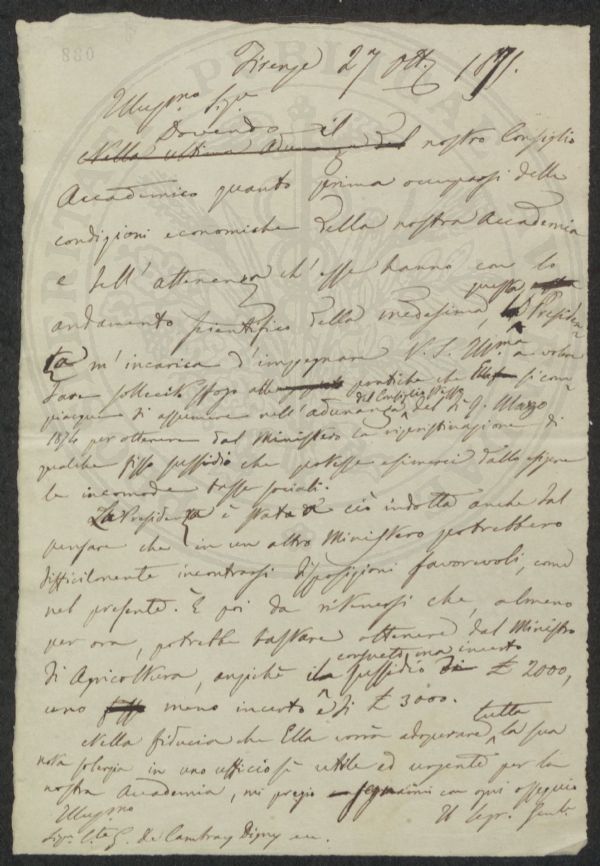 880
Firenze 27 Ott. 1871.
Illmo Sigre
Dovendo il
Nella ultima adunanza del nostro Consiglio
Accademico quanto prima occuparsi delle
condizioni economiche della nostra Accademia
e dell' attenenza ch' esse hanno con lo
questa
andamento scientifico della medesima, la Presiden
za m' incarica d' impegnare V. S. Illma a voler
dare sollecito sfogo alle pratiche che si com
del Consiglio
piacque di assumere nell' adunanza del dì 9. Marzo
187 per ottenere dal Ministero la ripristinazione di
qualche fisso sussidio che potesse esimerci dallo esigere
le incomode tasse sociali.
La Presidenza è stata a ciò indotta anche dal
pensare che in un altro Ministero potrebbero
difficilmente incontrarsi disposizioni favorevoli, come
nel presente. È poi da ritenersi che, almeno
per ora, potrebbe bastare ottenere dal Ministro
consueto, ma incerto
di Agricoltura, anzichè il sussidio di £ 2000,
uno meno incerto di £ 3000.
tutta
Nella fiducia che Ella vorrà adoperare la sua
nota solerzia in uno ufficio sì utile ed urgente per la
nostra Accademia, mi pregio segnarmi con ogni ossequio
Illmo Il Segr.
Sigr Cte G. de Cambray Digny